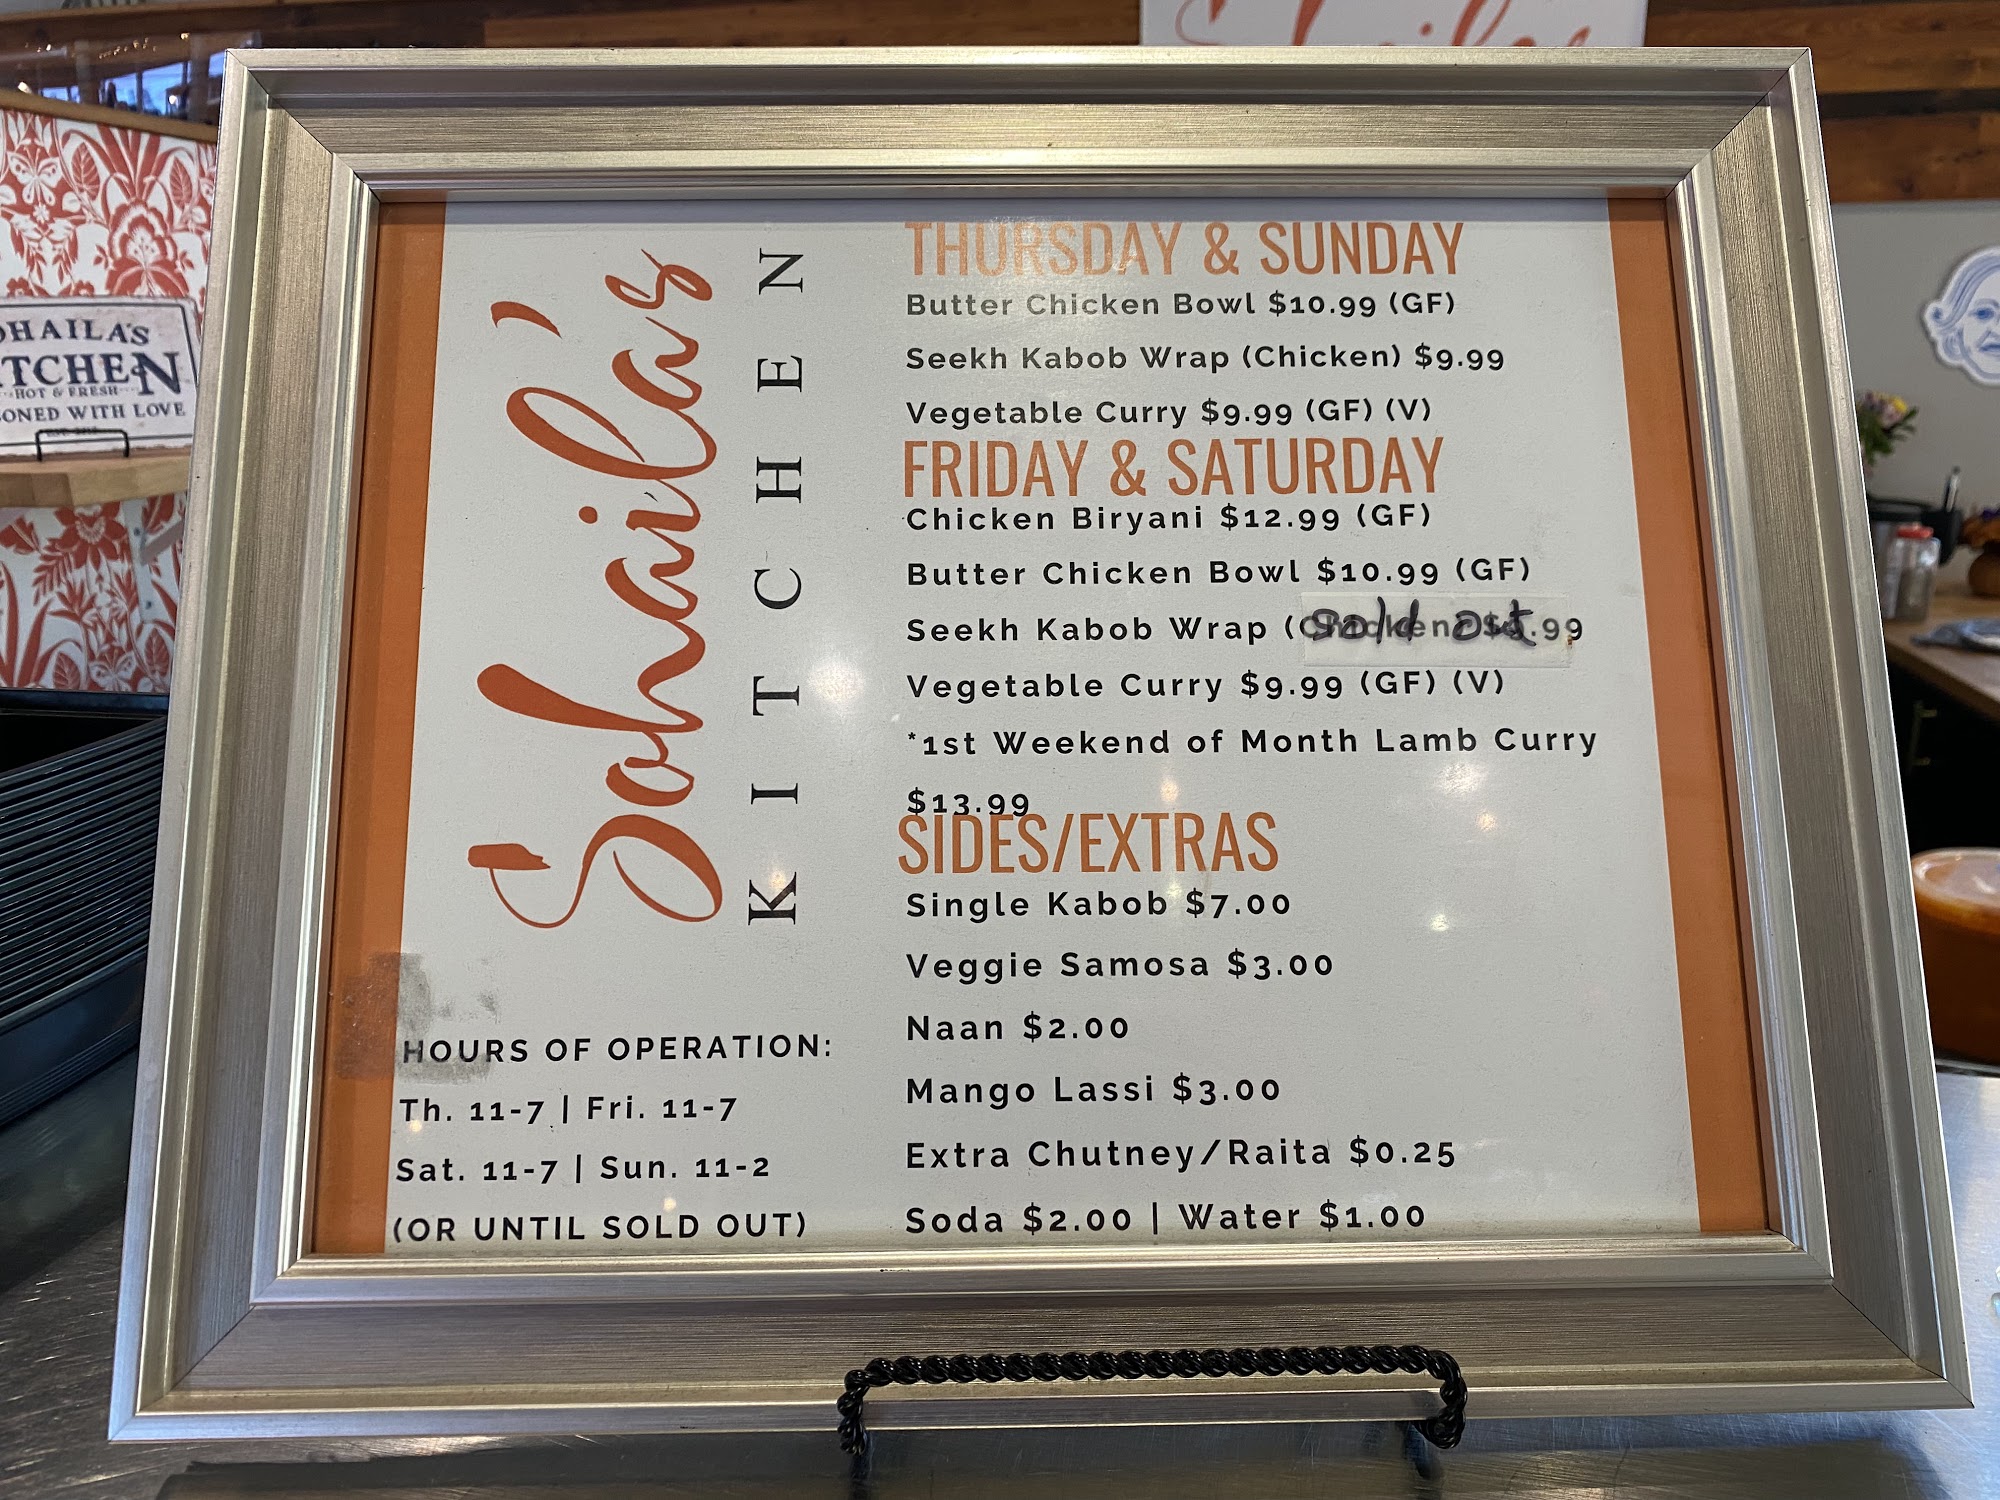 Sohaila's
KITCHEN
HOURS OF OPERATION:
Th. 11-7 | Fri. 11-7
Sat. 11-7 | Sun. 11-2
(OR UNTIL SOLD OUT)
THURSDAY & SUNDAY
Butter Chicken Bowl $10.99 (GF)
Seekh Kabob Wrap (Chicken) $9.99
Vegetable Curry $9.99 (GF) (V)
FRIDAY & SATURDAY
Chicken Biryani $12.99 (GF)
Butter Chicken Bowl $10.99 (GF)
Seekh Kabob Wrap (Chicken) $9.99
Sold out
Vegetable Curry $9.99 (GF) (V)
*1st Weekend of Month Lamb Curry
$13.99
SIDES/EXTRAS
Single Kabob $7.00
Veggie Samosa $3.00
Naan $2.00
Mango Lassi $3.00
Extra Chutney/Raita $0.25
Soda $2.00 | Water $1.00
OHAILA'S
TCHEN
HOT & FRESH
ONED WITH LOVE